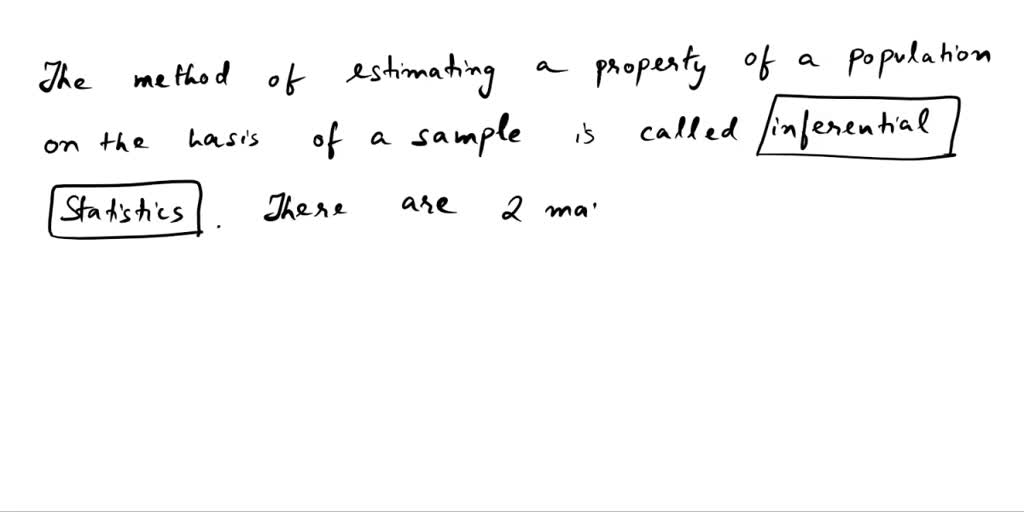 The method of estimating a property of a population
on the basis of a sample is called inferential
Statistics. There are 2 mai